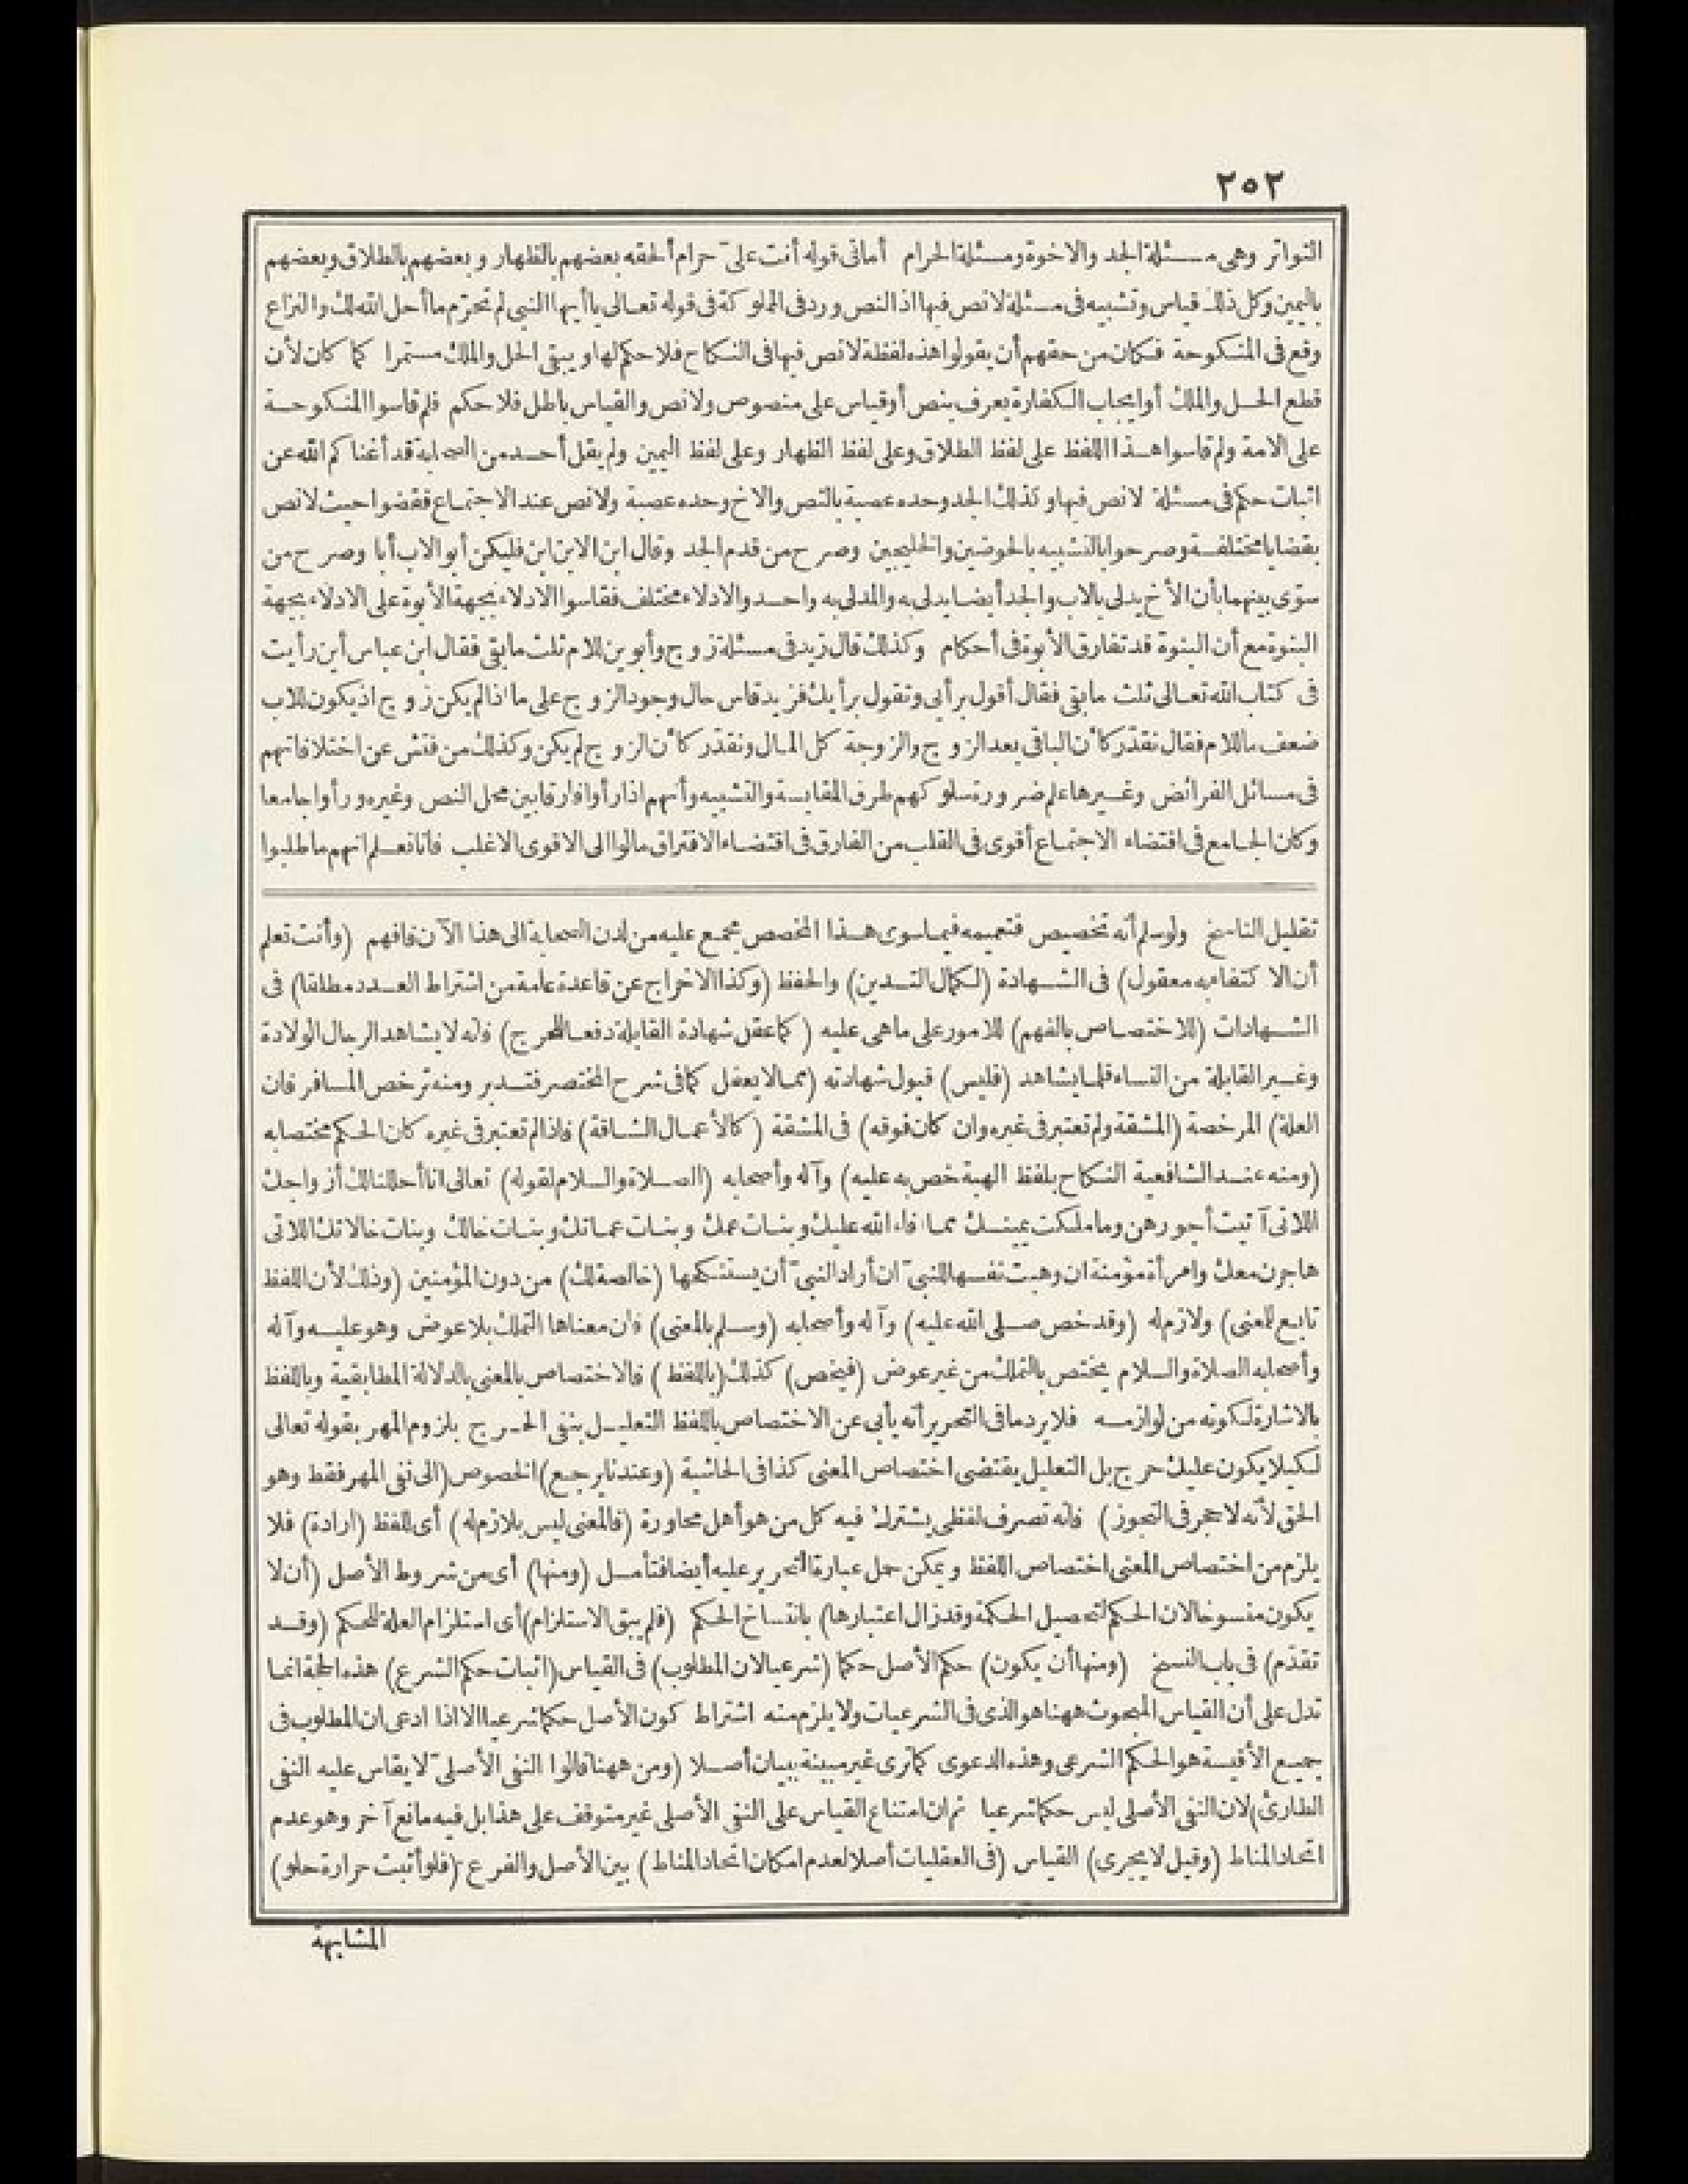 ٢٥٢
التواتر وهى مسئلة الجد والاخوة ومسئلة الحرام أما فى قوله أنت علىّ حرام ألحقه بعضهم بالظهار وبعضهم بالطلاق وبعضهم
باليمين وكل ذلك قياس وتشبيه فى مسئلة لا نص فيها اذ النص ورد فى المملوكة فى قوله تعالى يا أيها النبى لم تحرّم ما أحل الله لك والنزاع
وقع فى المنكوحة فكان من حقهم أن يقولوا هذه لفظة لا نص فيها فى النكاح فلا حكم لها ويبقى الحل والملك مستمرا كما كان لأن
قطع الحل والملك أو ايجاب الكفارة يعرف بنص أو قياس على منصوص ولا نص والقياس باطل فلا حكم فلم قاسوا المنكوحة
على الامة ولم قاسوا هذا اللفظ على لفظ الطلاق وعلى لفظ الظهار وعلى لفظ اليمين ولم يقل أحد من الصحابة قد أغناكم الله عن
اثبات حكم فى مسئلة لا نص فيها وكذلك الجد وحده عصبة بالنص والاخ وحده عصبة ولا نص عند الاجتماع فقضوا حيث لا نص
بقضايا مختلفة وصرحوا بالتشبيه بالحوضين والخليجين وصرح من قدم الجد وقال ابن الابن ابن فليكن أبو الاب أبا وصرح من
سوّى بينهما بأن الأخ يدلى بالاب والجد أيضا يدلى به والمدلى به واحد والادلاء مختلف فقاسوا الادلاء بجهة الأبوة على الادلاء بجهة
البنوة مع أن البنوة قد تفارق الأبوة فى أحكام وكذلك قال زيد فى مسئلة زوج وأبوين للام ثلث ما بقى فقال ابن عباس أين رأيت
فى كتاب الله تعالى ثلث ما بقى فقال أقول برأيى وتقول برأيك فزيد قاس حال وجود الزوج على ما اذا لم يكن زوج اذ يكون للاب
ضعف ما للام فقال نقدّر كأن الباقى بعد الزوج والزوجة كل المال ونقدّر كأن الزوج لم يكن وكذلك من فتش عن اختلافاتهم
فى مسائل الفرائض وغيرها علم ضرورة سلوكهم طرق المقايسة والتشبيه وأنهم اذا رأوا فارقا بين محل النص وغيره ورأوا جامعا
وكان الجامع فى اقتضاء الاجتماع أقوى فى القلب من الفارق فى اقتضاء الافتراق مالوا الى الاقوى الاغلب فانا نعلم انهم ما طلبوا
تقليل الناسخ ولو سلم أنه تخصيص فتعميمه فيما سوى هذا المخصص مجمع عليه من لدن الصحابة الى هذا الآن فافهم (وأنت تعلم
أن الاكتفاء به معقول) فى الشهادة (لكمال التدين) والحفظ (وكذا الاخراج عن قاعدة عامة من اشتراط العدد مطلقا) فى
الشهادات (للاختصاص بالفهم) للامور على ما هى عليه (كما عقل شهادة القابلة دفعا للحرج) فانه لا يشاهد الرجال الولادة
وغير القابلة من النساء قلما يشاهد (فليس) قبول شهادته (مما لا يعقل كما فى شرح المختصر فتدبر ومنه ترخص المسافر فان
العلة) المرخصة (المشقة ولم تعتبر فى غيره وان كان فوقه) فى المشقة (كالأعمال الشاقة) فاذا لم تعتبر فى غيره كان الحكم مختصا به
(ومنه عند الشافعية النكاح بلفظ الهبة خص به عليه) وآله وأصحابه (الصلاة والسلام لقوله) تعالى انا أحللنا لك أزواجك
اللاتى آتيت أجورهن وما ملكت يمينك مما أفاء الله عليك وبنات عمك وبنات عماتك وبنات خالك وبنات خالاتك اللاتى
هاجرن معك وامرأة مؤمنة ان وهبت نفسها للنبىّ ان أراد النبىّ أن يستنكحها (خالصة لك) من دون المؤمنين (وذلك لأن اللفظ
تابع للمعنى) ولازم له (وقد خص صلى الله عليه) وآله وأصحابه (وسلم بالمعنى) فان معناها التملك بلا عوض وهو عليه وآله
وأصحابه الصلاة والسلام يختص بالتملك من غير عوض (فيخص) كذلك (باللفظ) فالاختصاص بالمعنى بالدلالة المطابقية وباللفظ
بالاشارة لكونه من لوازمه فلا يرد ما فى التحرير أنه يأبى عن الاختصاص باللفظ التعليل بنفى الحرج بلزوم المهر بقوله تعالى
لكيلا يكون عليك حرج بل التعليل يقتضى اختصاص المعنى كذا فى الحاشية (وعندنا يرجع) الخصوص (الى نفى المهر فقط وهو
الحق لأنه لا حجر فى التجوز) فانه تصرف لفظى يشترك فيه كل من هو أهل محاورة (فالمعنى ليس بلازم له) أى للفظ (ارادة) فلا
يلزم من اختصاص المعنى اختصاص اللفظ ويمكن حمل عبارة التحرير عليه أيضا فتأمل (ومنها) أى من شروط الأصل (أن لا
يكون منسوخا لان الحكم لتحصيل الحكمة وقد زال اعتبارها) بانتساخ الحكم (فلم يبق الاستلزام) أى استلزام العلة للحكم (وقد
تقدّم) فى باب النسخ (ومنها أن يكون) حكم الأصل حكما (شرعيا لان المطلوب) فى القياس (اثبات حكم الشرع) هذه الحجة انما
تدل على أن القياس المبحوث ههنا هو الذى فى الشرعيات ولا يلزم منه اشتراط كون الأصل حكما شرعيا الا اذا ادعى ان المطلوب فى
جميع الأقيسة هو الحكم الشرعى وهذه الدعوى كما ترى غير مبينة ببيان أصلا (ومن ههنا قالوا النفى الأصلىّ لا يقاس عليه النفى
الطارئ) لان النفى الأصلى ليس حكما شرعيا ثم ان امتناع القياس على النفى الأصلى غير متوقف على هذا بل فيه مانع آخر وهو عدم
اتحاد المناط (وقيل لا يجرى) القياس (فى العقليات أصلا لعدم امكان اتحاد المناط) بين الأصل والفرع (فلو أثبت حرارة حلو)
المشابهة